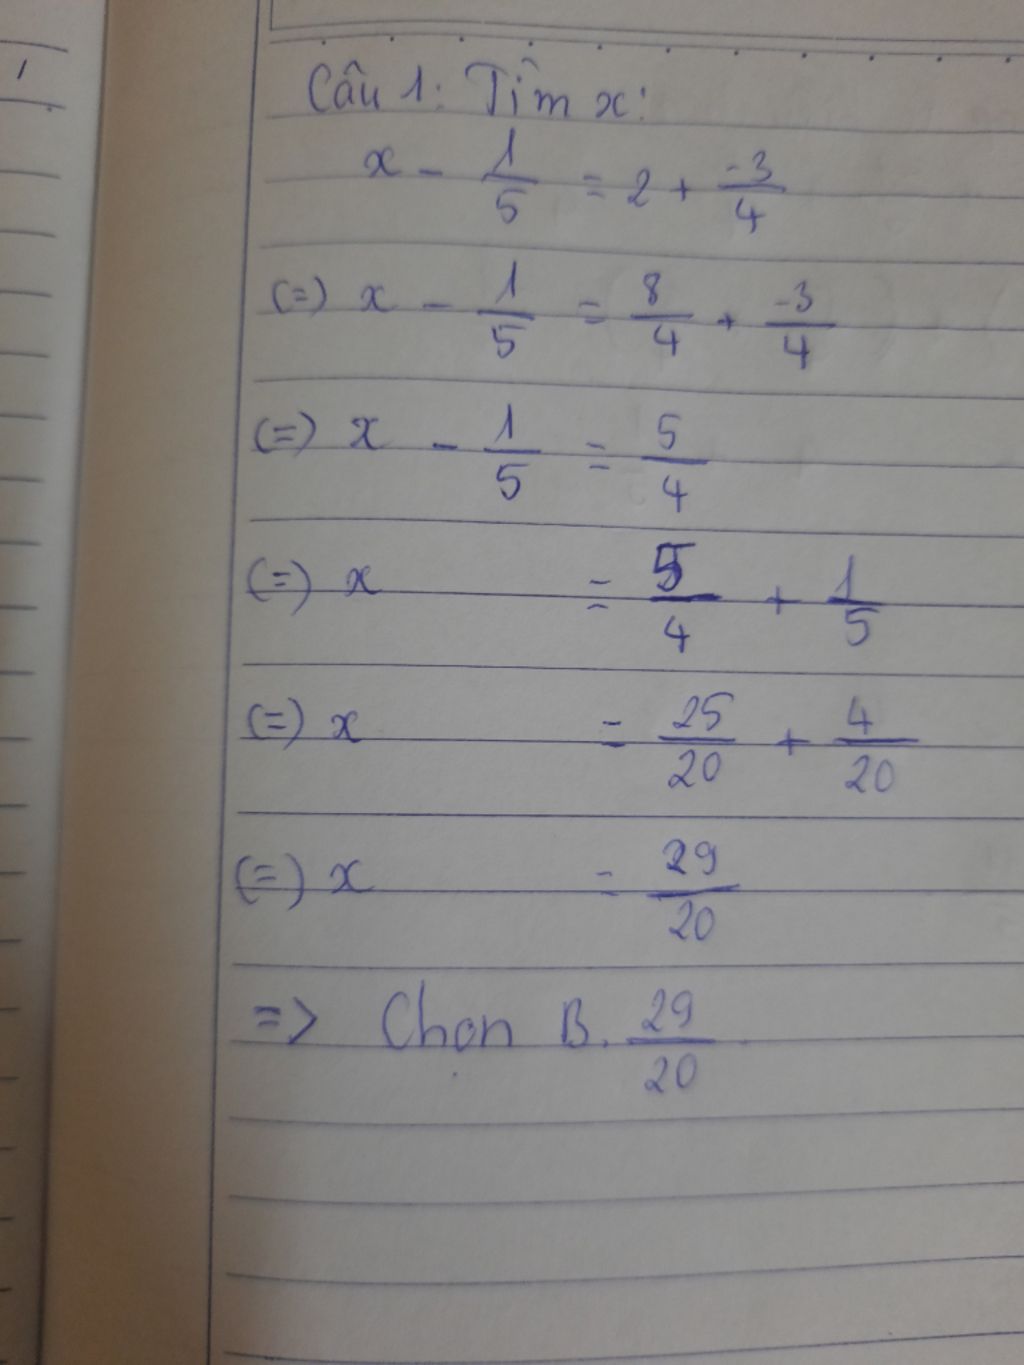 Câu 1: Tìm x:
x - 1/5 = 2 + -3/4
(=) x - 1/5 = 8/4 + -3/4
(=) x - 1/5 = 5/4
(=) x = 5/4 + 1/5
(=) x = 25/20 + 4/20
(=) x = 29/20
=> Chọn B. 29/20